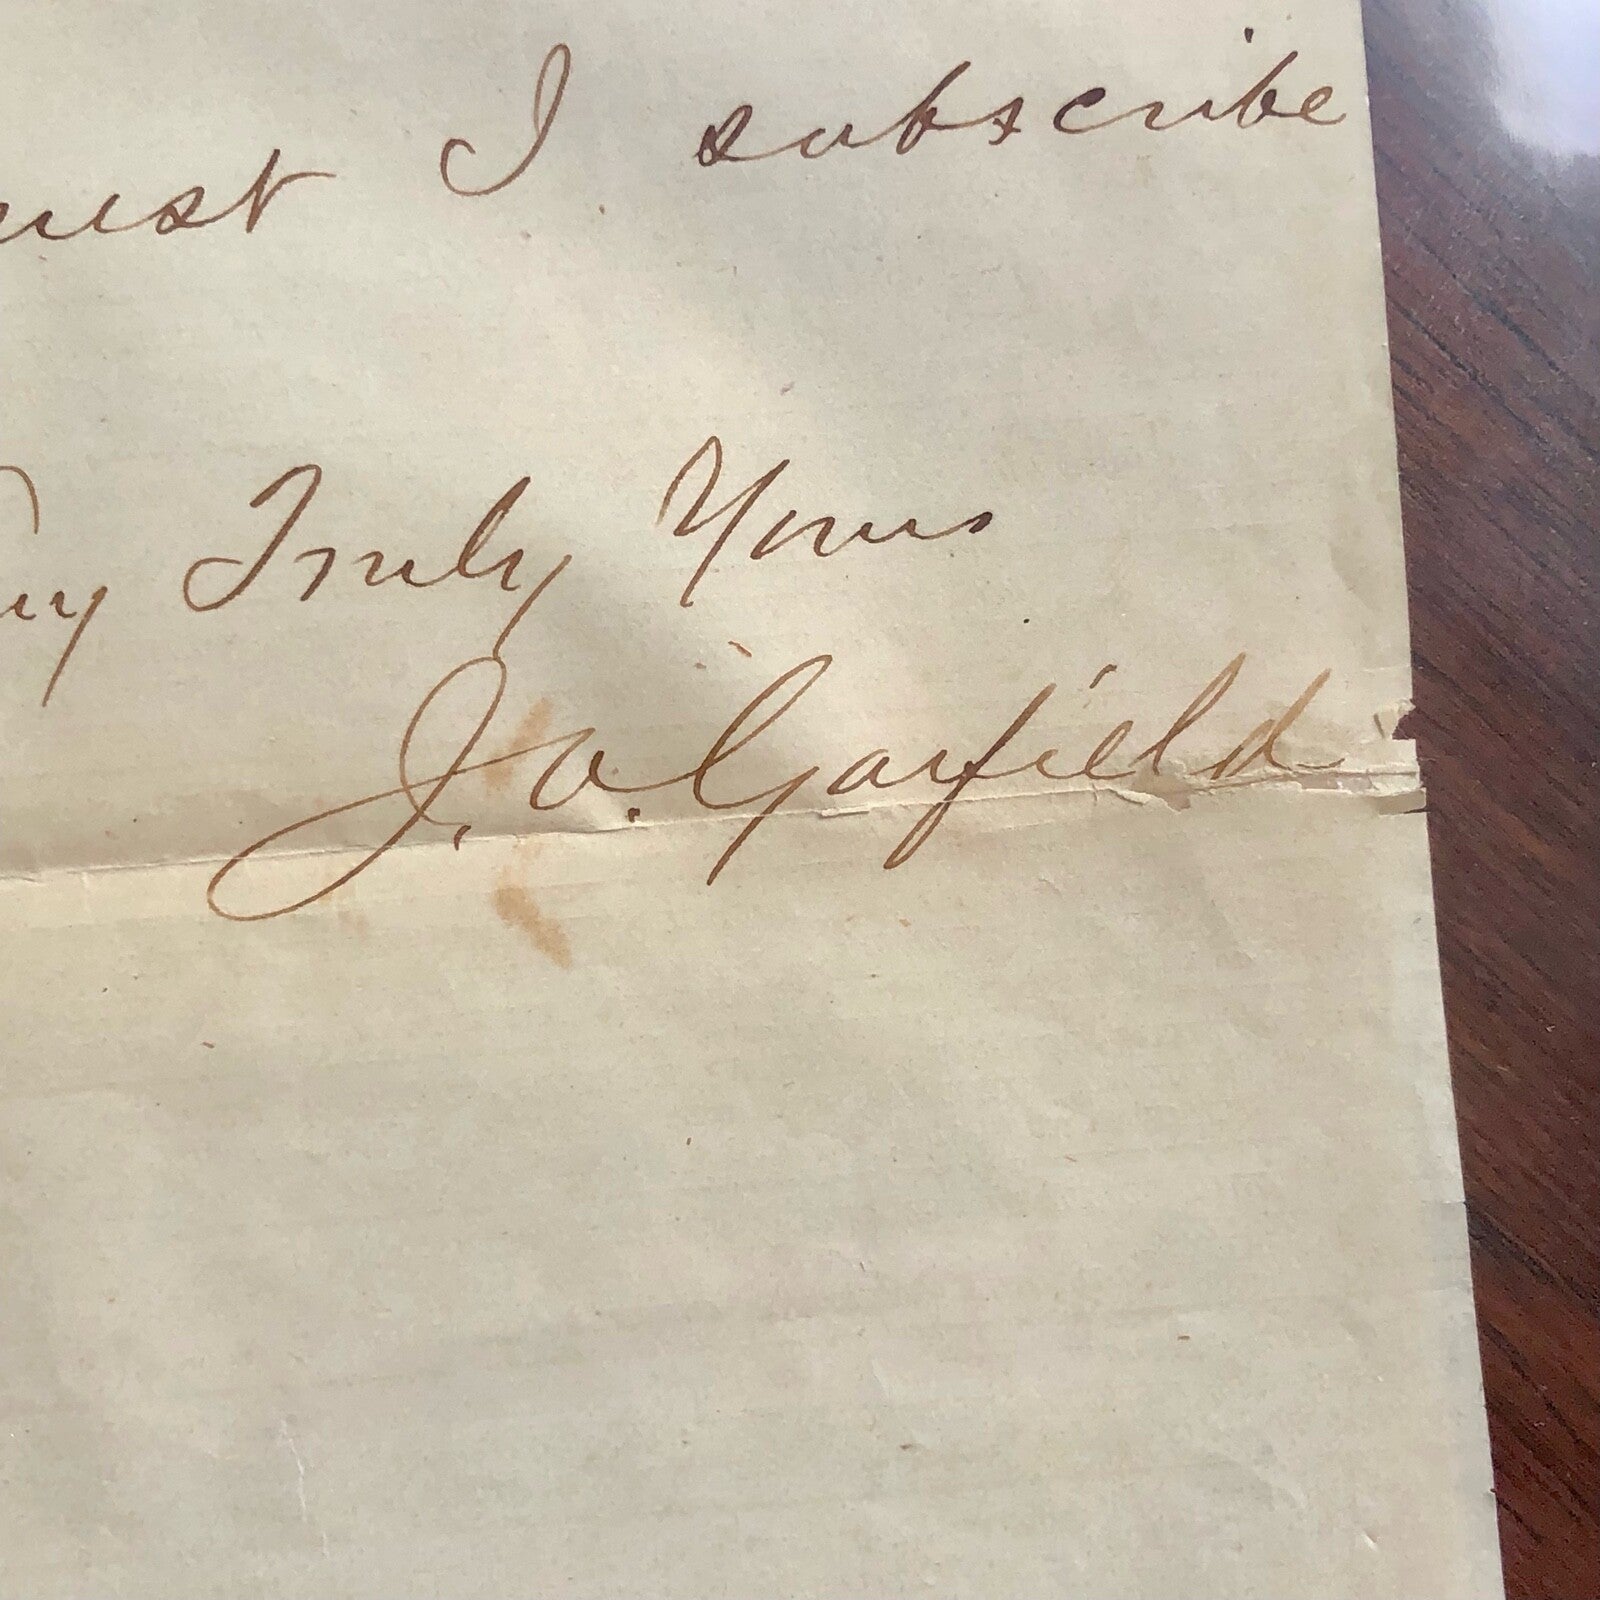 I subscribe
Truly Yours
J. A. Garfield